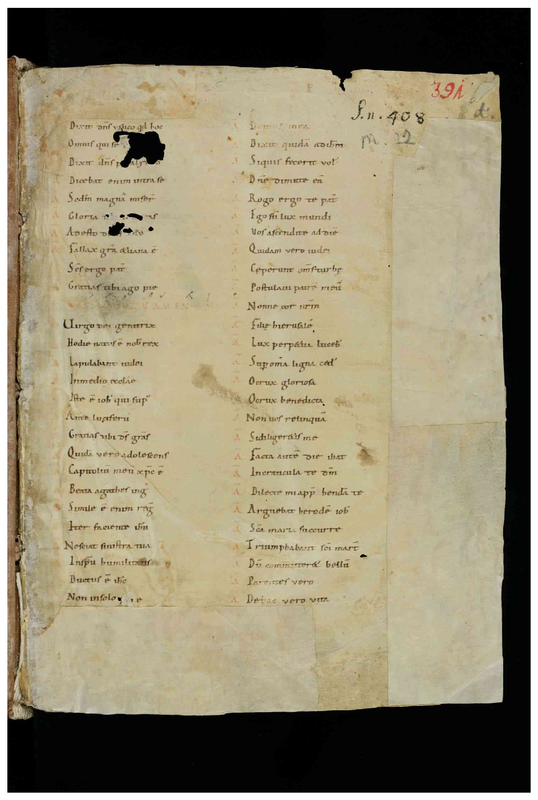 391
S. n. 408
M. 22
Dixit dñs
Omnis qui se
Dixit dñs
Dicebat enim intra se
Sedm magnā miser
Gloria
Adesto
Fallax grā & uana ē
Ses ergo pat
Gratias tibi ago pie
Uirgo dei genitrix
Hodie natus ē nob rex
Lapidabant iudei
In medio ecclae
Iste ē ioh qui sup
Ante luciferū
Gratias tibi ds grās
Quidā vero adolescens
Capitolin menī xpc ē
Beata agathes ing
Simile ē enim reg
Iter faciente ihu
Nesciat sinistra tua
In spu humilitatis
Ductus ē ihc
Non in solo
Dixit quidā ad ihm
Siquis fecerit vol
Dñe dimitte eā
Rogo ergo te pat
Ego sū lux mundi
Uos ascendite ad diē
Quidam vero iudei
Ceperunt oms turbe
Postulavi patrē meū
Nonne cor nrm
Filie hierusalē
Lux perpetua luceb
Sup oma ligna ced
O crux gloriosa
O crux benedicta
Non uos relinquā
Si diligeritis me
Facta autē die ibat
In craticula te dm
Dilecte mi app hendā te
Arguebat herodē ioh
Scā maria succurre
Triumphabant sci mart
Dū committeret bellū
Parentes vero
De hac vero vita